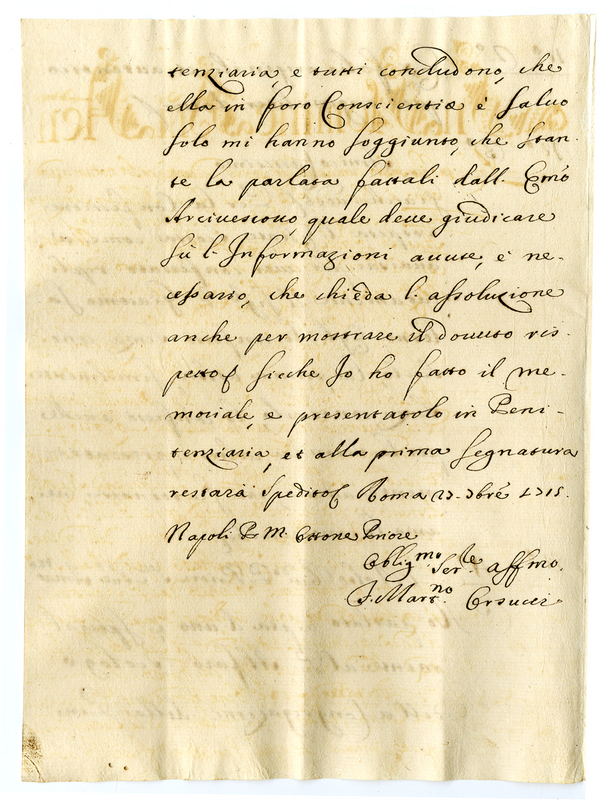 tenziaria, e tutti concludono, che
ella in foro Conscientiæ è salvo
solo mi hanno soggiunto, che stan-
te la parlata fattali dall. Emo
Arcivescovo, quale deve giudicare
sù l. Informazioni avute, è ne-
cessario, che chieda l. assoluzione
anche per mostrare il dovuto ris-
petto sicche Io ho fatto il me-
moriale, e presentatolo in Peni-
tenziaria, et alla prima segnatura
restarà spedito Roma 1715.
Napoli P. M. Ottone Priore
Obligmo Serle affmo.
F. Martno Orsucci